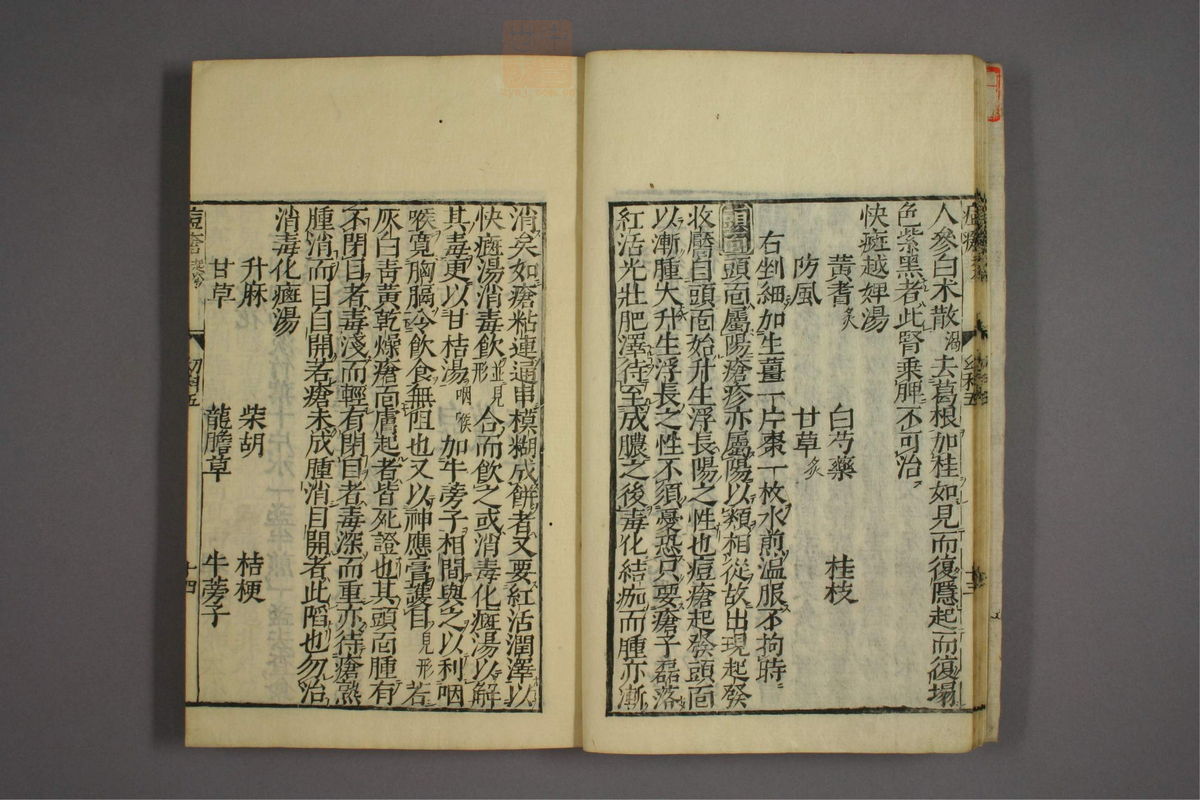 人參白朮散渴去葛根加桂如見而復隱起而復塌
色紫黑者此腎乘脾不可治
快斑越婢湯
黃耆炙 白芍藥 桂枝
防風 甘草炙
右剉細加生薑一片棗一枚水煎温服不拘時
頭面頭面屬陽瘡疹亦屬陽以類相從故出現起發
收靨自頭面始升生浮長陽之性也痘瘡起發頭面
以漸腫大升生浮長之性不須憂恐只要瘡子磊落
紅活光壯肥澤待至成膿之後毒化結痂而腫亦漸
消矣如瘡粘連通串模糊成餅者又要紅活潤澤以
快癍湯消毒飲並見形合而飲之或消毒化癍湯以解
其毒更以甘桔湯咽喉加牛蒡子相間與之以利咽
喉寬胸膈令飲食無阻也又以神應膏護目見形若
灰白青黃乾燥瘡面膚起者皆死證也其頭面腫有
不閉目者毒淺而輕有閉目者毒深而重亦待瘡熟
腫消而目自開若瘡未成腫消目開者此陷也勿治
消毒化癍湯
升麻 柴胡 桔梗
甘草 龍膽草 牛蒡子
痘瘡 十四